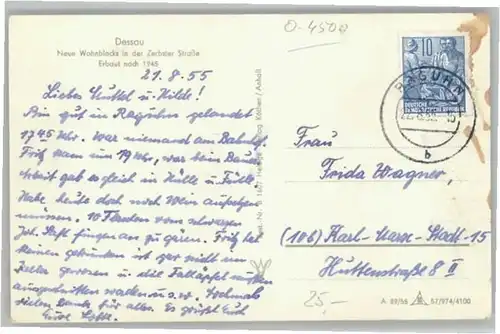 Dessau
Neue Wohnblocks in der Zerbster Straße
Erbaut nach 1945
21.8.55
Liebes Muttel u. Hilde!
Bin gut in Raguhn gelandet
17 45 Uhr. War niemand am Bahnhf.
Fritz kam um 19 Uhr, war beim Bauer.
Arbeit gab es gleich in Hülle u. Fülle.
Habe heute doch noch
müssen. 10 Flaschen vom schwarzen
Joh. Saft fingen an zu gären. Fritz hat
keinen getrunken ist gar nicht im
Keller gewesen u. die Falläpfel mußten
ausgeschnitten werden u.s.w. Nochmals
vielen Dank für alles. Es grüßt Euch
Eure Lotte.
O-4500
10
DEUTSCHE
DEMOKRATISCHE REPUBLIK
RAGUHN
b
Frau
Frida Wagner,
(10b) Karl-Marx-Stadt-15
Huttenstraße 8 II
25,-
A 89/55
57/974/4100
Köthen / Anhalt